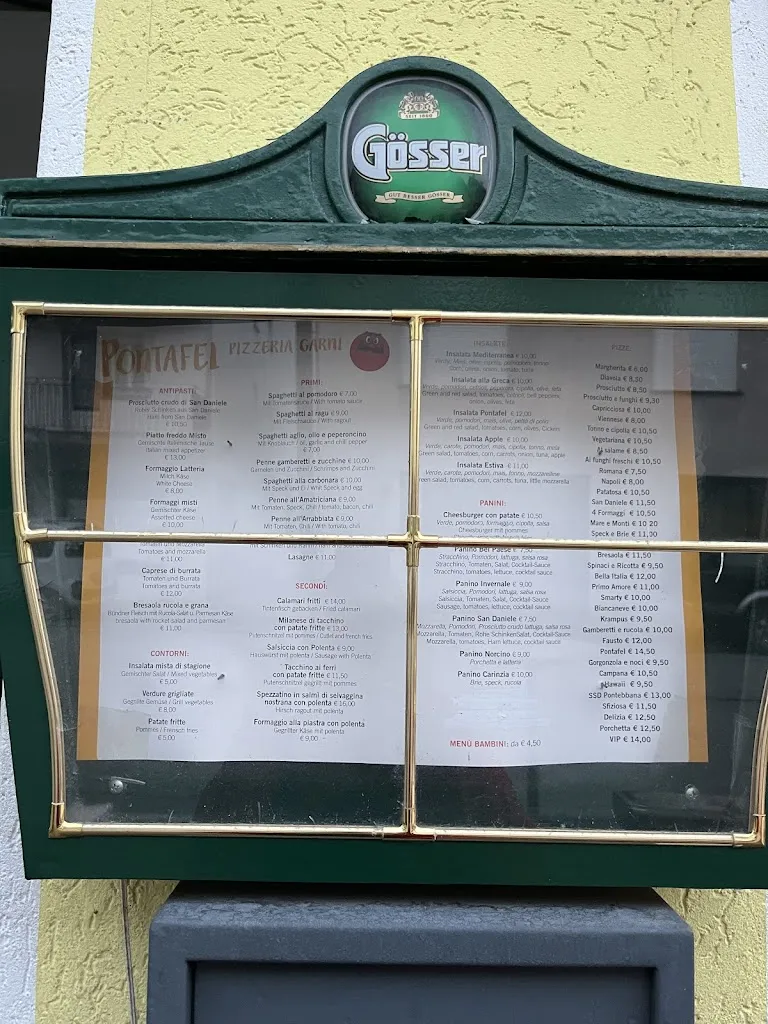 SEIT 1860
Gösser
GUT BESSER GÖSSER
PONTAFEL PIZZERIA GARNI
ANTIPASTI:
Prosciutto crudo di San Daniele
Ham from San Daniele
€ 10,50
Piatto freddo Misto
Gemischte italienische Jause
Italian mixed appetizer
€ 13,00
Formaggio Latteria
Milch Käse
White Cheese
€ 8,00
Formaggi misti
Gemischter Käse
Assorted cheese
€ 10,00
Tomaten und Mozzarella
Tomatoes and mozzarella
€ 11,00
Caprese di burrata
Tomaten und Burrata
Tomatoes and burrata
€ 12,00
Bresaola rucola e grana
Bündner Fleisch mit Rucola-Salat u. Parmesan Käse
bresaola with rocket salad and parmesan
€ 11,00
CONTORNI:
Insalata mista di stagione
Gemischter Salat / Mixed vegetables
€ 5,00
Verdure grigliate
Gegrillte Gemüse / Grill vegetables
€ 8,00
Patate fritte
Pommes / French fries
€ 5,00
PRIMI:
Spaghetti al pomodoro € 7,00
Mit Tomatensauce / With tomato sauce
Spaghetti al ragù € 9,00
Mit Fleischsauce / With ragout
Spaghetti aglio, olio e peperoncino
Mit Knoblauch / oil, garlic and chili pepper
€ 7,00
Penne gamberetti e zucchine € 10,00
Garnelen und Zucchini / Schrimps and Zucchini
Spaghetti alla carbonara € 10,00
Mit Speck und Ei / Whit Speck and egg
Penne all'Amatriciana € 9,00
Mit Tomaten, Speck, Chili / With tomato, bacon, chili
Penne all'Arrabbiata € 9,00
Mit Tomaten, Chili / With tomato, chili
Lasagne € 11,00
SECONDI:
Calamari fritti € 14,00
Tintenfisch gebacken / Fried calamari
Milanese di tacchino
con patate fritte € 13,00
Putenschnitzel mit pommes / Cutlet and french fries
Salsiccia con Polenta € 9,00
Hauswürst mit polenta / Sausage with Polenta
Tacchino ai ferri
con patate fritte € 11,50
Putenschnitzel gegrillt mit pommes
Spezzatino in salmì di selvaggina
nostrana con polenta € 16,00
Hirsch ragout mit polenta
Formaggio alla piastra con polenta
Gegrillter Käse mit polenta
€ 9,00
INSALATE:
Insalata Mediterranea € 10,00
Insalata alla Greca € 10,00
Insalata Pontafel € 12,00
Green and red salad, tomatoes, corn, olives, Cicken
Insalata Apple € 10,00
Verde, carote, pomodori, mais, cipolla, tonno, mela
Green salad, tomatoes, corn, carrots, onion, tuna, apple
Insalata Estiva € 11,00
Verde, carote, pomodori, mais, tonno, mozzarelline
Green salad, tomatoes, corn, carrots, tuna, little mozzarella
PANINI:
Cheesburger con patate € 10,50
Verde, pomodorici, formaggio, cipolla, salsa
Cheesburger mit pommes
Panino Bel Paese € 7,50
Stracchino, Pomodori, lattuga, salsa rosa
Stracchino, Tomaten, Salat, Cocktail-Sauce
Stracchino, tomatoes, lettuce, cocktail sauce
Panino Invernale € 9,00
Salsiccia, Pomodori, lattuga, salsa rosa
Salsiccia, Tomaten, Salat, Cocktail-Sauce
Sausage, tomatoes, lettuce, cocktail sauce
Panino San Daniele € 7,50
Mozzarella, Pomodori, Prosciutto crudo lattuga, salsa rosa
Mozzarella, Tomaten, Rohe SchinkenSalat, Cocktail-Sauce
Mozzarella, tomatoes, Ham lettuce, cocktail sauce
Panino Norcino € 9,00
Porchetta e latteria
Panino Carinzia € 10,00
Brie, speck, rucola
MENÙ BAMBINI: da € 4,50
PIZZE:
Margherita € 6,00
Diavola € 8,50
Prosciutto € 8,50
Prosciutto e funghi € 9,30
Capricciosa € 10,00
Viennese € 8,00
Tonno e cipolla € 10,50
Vegetariana € 10,50
Al salame € 8,50
Ai funghi freschi € 10,50
Romana € 7,50
Napoli € 8,00
Patatosa € 10,50
San Daniele € 11,50
4 Formaggi € 10,50
Mare e Monti € 10 20
Speck e Brie € 11,00
Bresaola € 11,50
Spinaci e Ricotta € 9,50
Bella Italia € 12,00
Primo Amore € 11,00
Smarty € 10,00
Biancaneve € 10,00
Krampus € 9,50
Gamberetti e rucola € 10,00
Fausto € 12,00
Pontafel € 14,50
Gorgonzola e noci € 9,50
Campana € 10,50
Hawaii € 9,50
SSD Pontebbana € 13,00
Sfiziosa € 11,50
Delizia € 12,50
Porchetta € 12,50
VIP € 14,00